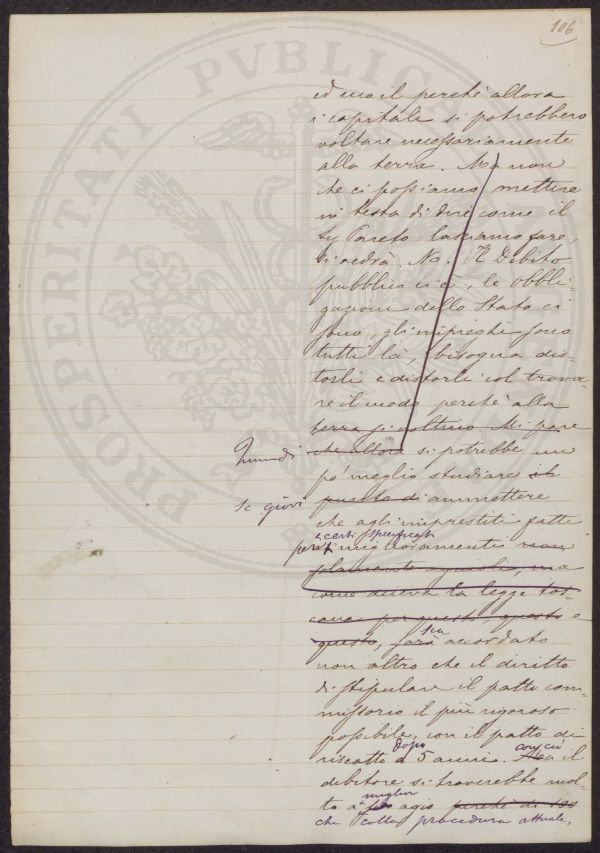 106
PROSPERITATI PVBLICAE
ed ecco il perchè allora
i capitali si potrebbero
voltare necessariamente
alla terra. Ma non
che ci possiamo mettere
in testa di dire come il
Sig Pareto: lasciamo fare,
si vedrà. No. Il Debito
pubblico ci è, le obbli-
gazioni dello Stato ci
sono, gli impieghi sono
tutti là, bisogna dis-
torli e distorli col trova-
re il modo perchè alla
terra si voltino. Mi pare
Quindi che allora si potrebbe un
po' meglio studiare
se giovi ammettere
che agli imprestiti fatti
a certi specificati
per miglioramenti non
solamente agricoli, ma
come aveva la legge tos-
cana per questo questo e
questo, sarà accordato
sia
non altro che il diritto
di stipulare il patto com-
missorio il più rigoroso
possibile, con il patto di
riscatto dopo 5 anni. con ciò il
debitore si troverebbe mol-
to a miglior agio perchè di
che colla procedura attuale,